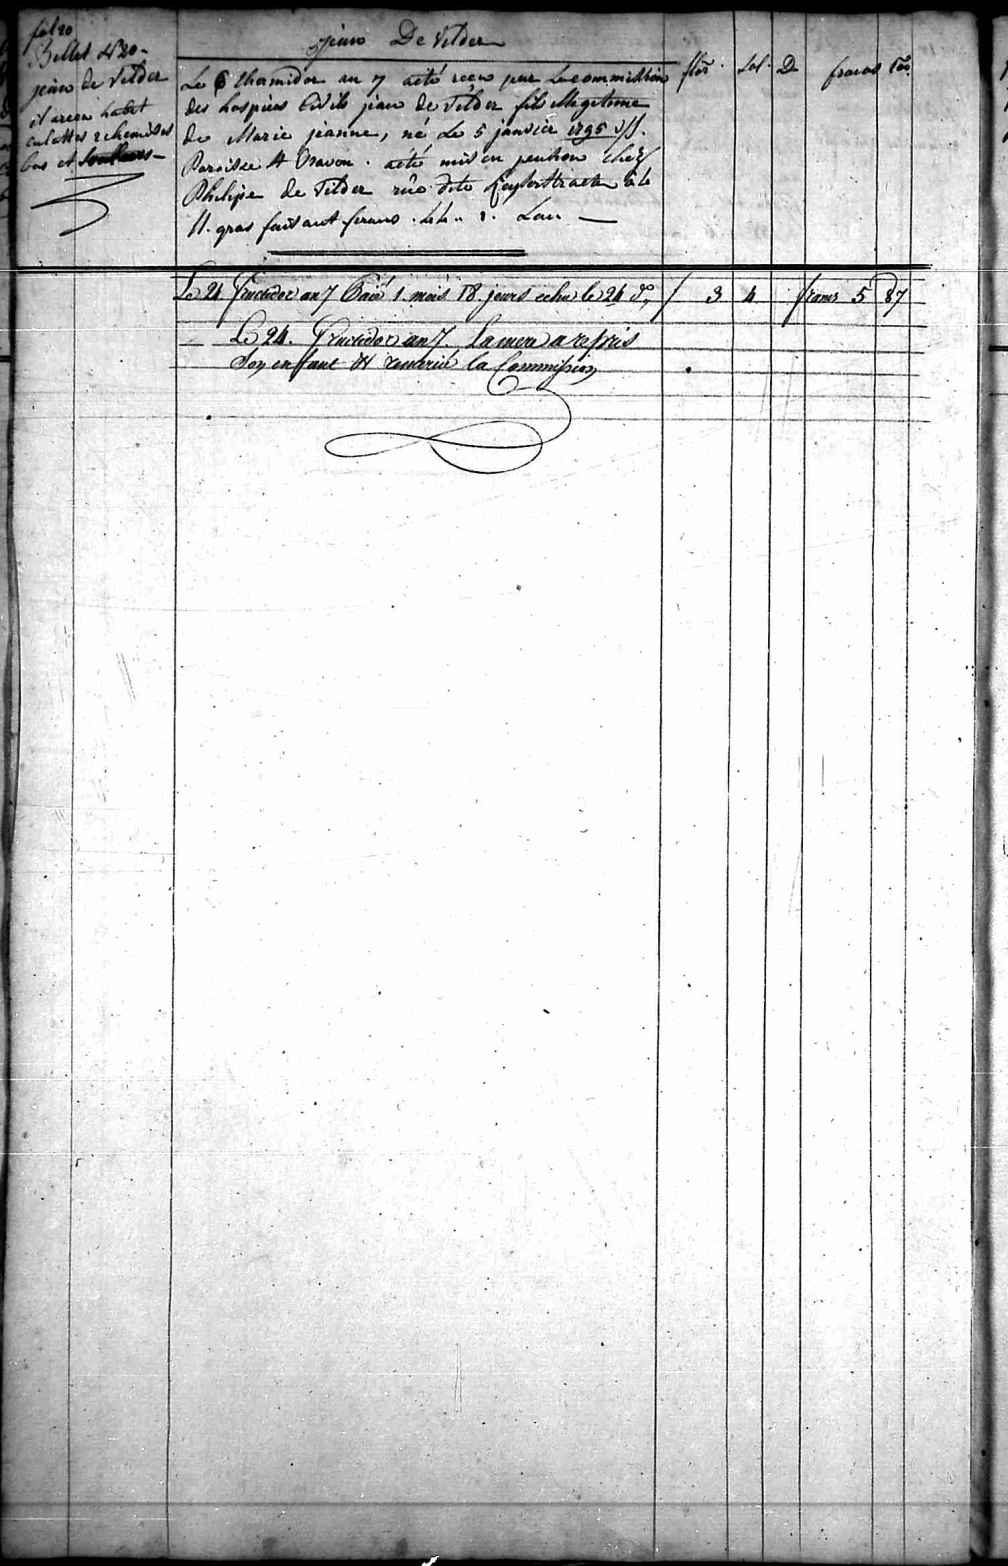 fol 20
Billet N° 20 -
jean de Velder
il a reçu habit
culottes 2 chemises
bas et soulliers -
Jean De Velder
flor. Sol. D francs Cs
Le 6 thermidor an 7 a été reçu par la commission
des hospices Civils jean de Velder fils illegitime
de Marie jeanne, né Le 5 janvier 1795 v/s.
Paroisse St Bavon. a été mis en pention chez
Philipe de Velder rûe dite à L
11. gros faisant francs. 44.. 2. L'an —
Le 24 fructidor an 7 Paié 1 mois 18 jours echu le 24 d°, / 3 4 francs 5 87
Le 24. fructidor an 7. la mere a repris
Son enfant et remercié la Commission